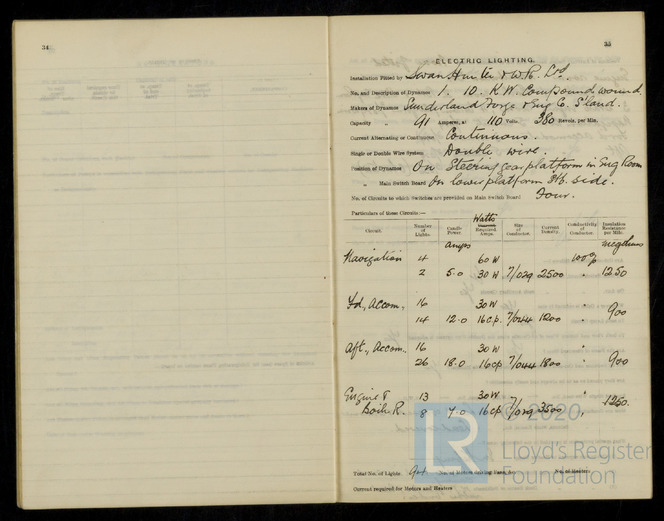 34
33
ELECTRIC LIGHTING.
Installation Fitted by Swan Hunter & W.R. Ltd.
No. and Description of Dynamos 1. 10. K.W. Compound wound.
Makers of Dynamos Sunderland Forge & Eng Co. S'land.
Capacity „ 91 Amperes, at 110 Volts, 380 Revols. per Min.
Current Alternating or Continuous Continuous.
Single or Double Wire System Double wire.
Position of Dynamos On Steering gear platform in Eng Room
„ Main Switch Board On lower platform side.
No. of Circuits to which Switches are provided on Main Switch Board Four.
Particulars of these Circuits:—
Circuit. Number of Lights. Candle Power. Watts Required Amps. Size of Conductor. Current Density. Conductivity of Conductor. Insulation Resistance per Mile.
Amps megohms
Navigation 4 60 W 100%
2 5.0 30 W 7/029 2500 „ 1250
Fd., Accom. 16 30 W
14 12.0 16 cp. 7/044 1200 „ 900
Aft., Accom. 16 30 W „
26 18.0 16 cp 7/044 1800 „ 900
Engine & 13 30 W „
Boiler R. 8 7.0 16 cp 7/029 3500 „ 1250.
© 2020
LR
Lloyd's Register
Foundation
Total No. of Lights 94 No. of Motors driving Fans, &c. No. of Heaters
Current required for Motors and Heaters